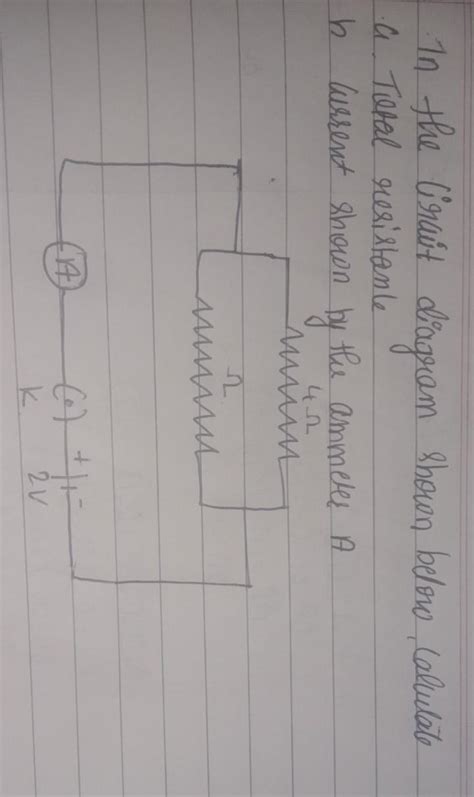 In the Circuit diagram shown below, Calculate
a. Total resistance
b Current shown by the ammeter A
4Ω
Ω
A
+ -
K
2V